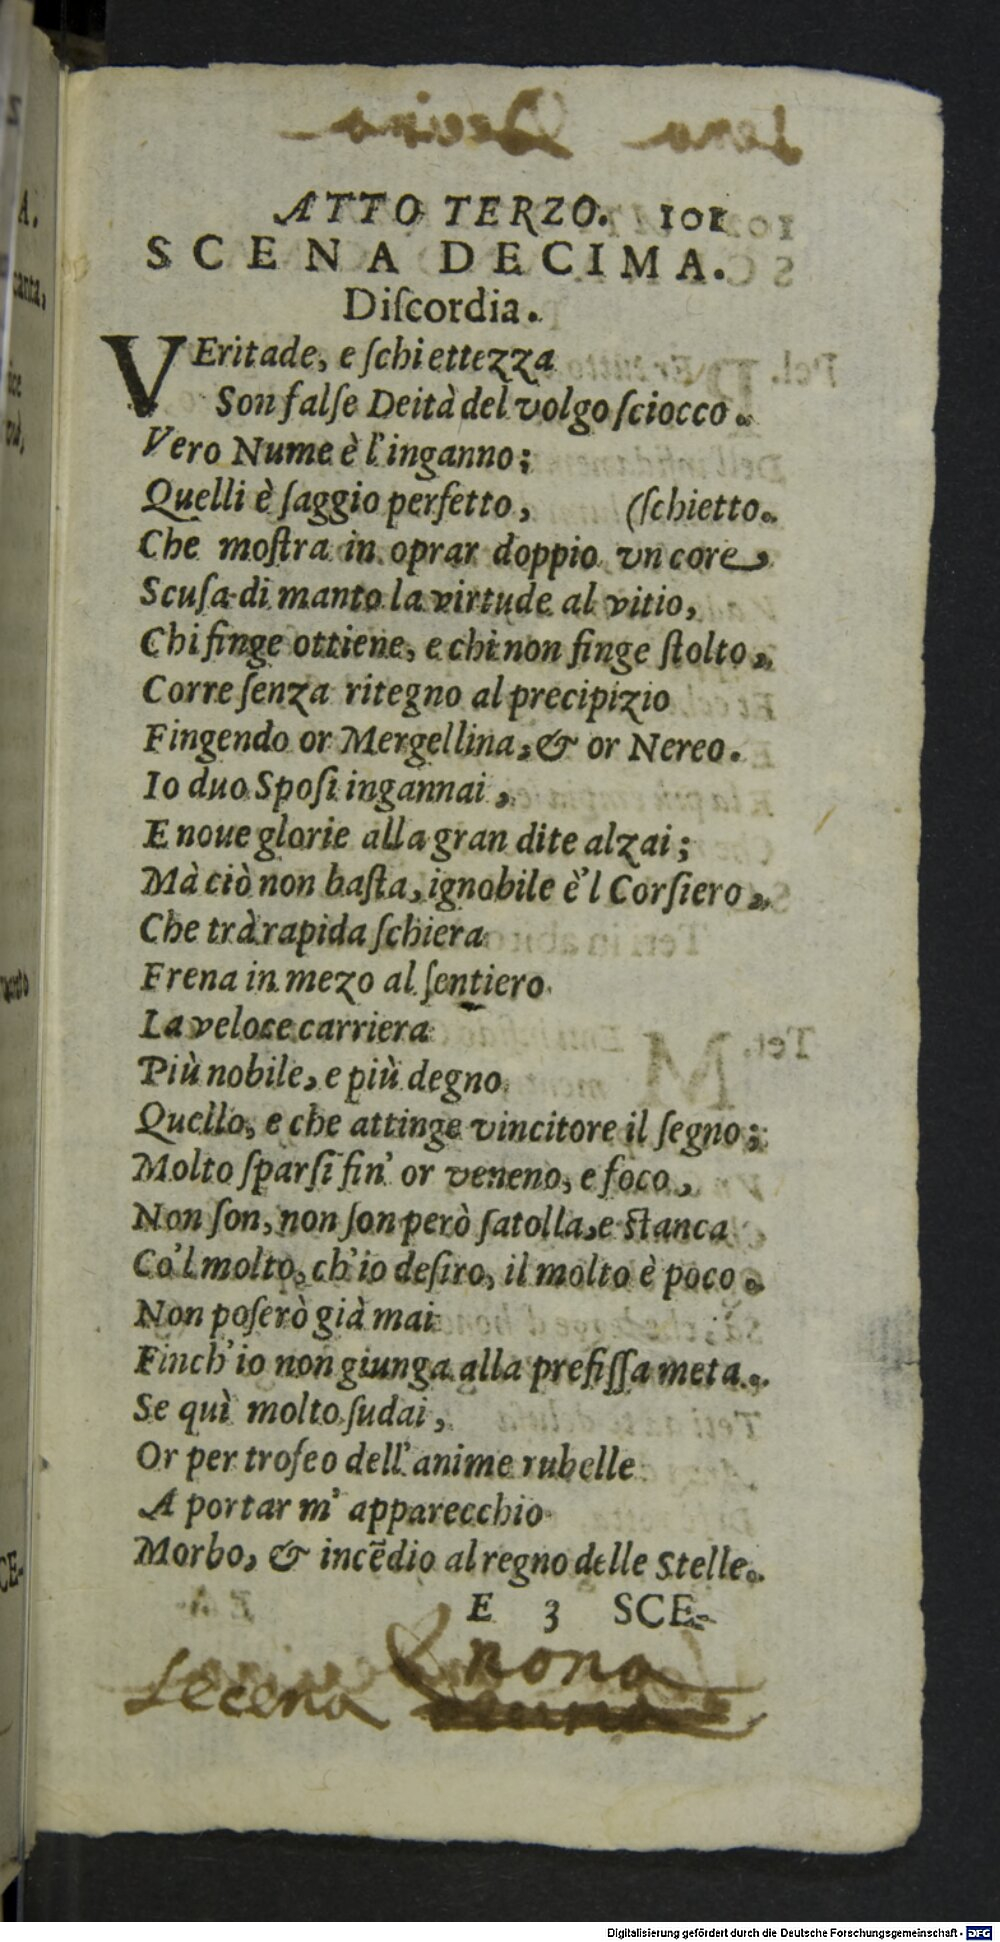 ATTO TERZO. 101
SCENA DECIMA.
Diſcordia.
VEritade, e ſchiettezza
Son falſe Deità del volgo ſciocco.
Vero Nume è l'inganno;
Quelli è ſaggio perfetto, (ſchietto.
Che moſtra in oprar doppio vn core,
Scuſa di manto la virtude al vitio,
Chi finge ottiene, e chi non finge ſtolto,
Corre ſenza ritegno al precipizio
Fingendo or Mergellina, & or Nereo.
Io duo Spoſi ingannai,
E noue glorie alla gran dite alzai;
Mà ciò non baſta, ignobile è'l Corſiero,
Che trà rapida ſchiera
Frena in mezo al ſentiero
La veloce carriera
Più nobile, e più degno
Quello, e che attinge vincitore il ſegno;
Molto ſparſi fin' or veneno, e foco,
Non ſon, non ſon però ſatolla, e ſtanca
Co'l molto, ch'io deſiro, il molto è poco.
Non poſerò già mai
Finch'io non giunga alla prefiſſa meta.
Se quì molto ſudai,
Or per trofeo dell'anime rubelle
A portar m' apparecchio
Morbo, & incēdio al regno delle Stelle.
E 3 SCE-
nona
Secena
Digitalisierung gefördert durch die Deutsche Forschungsgemeinschaft - DFG